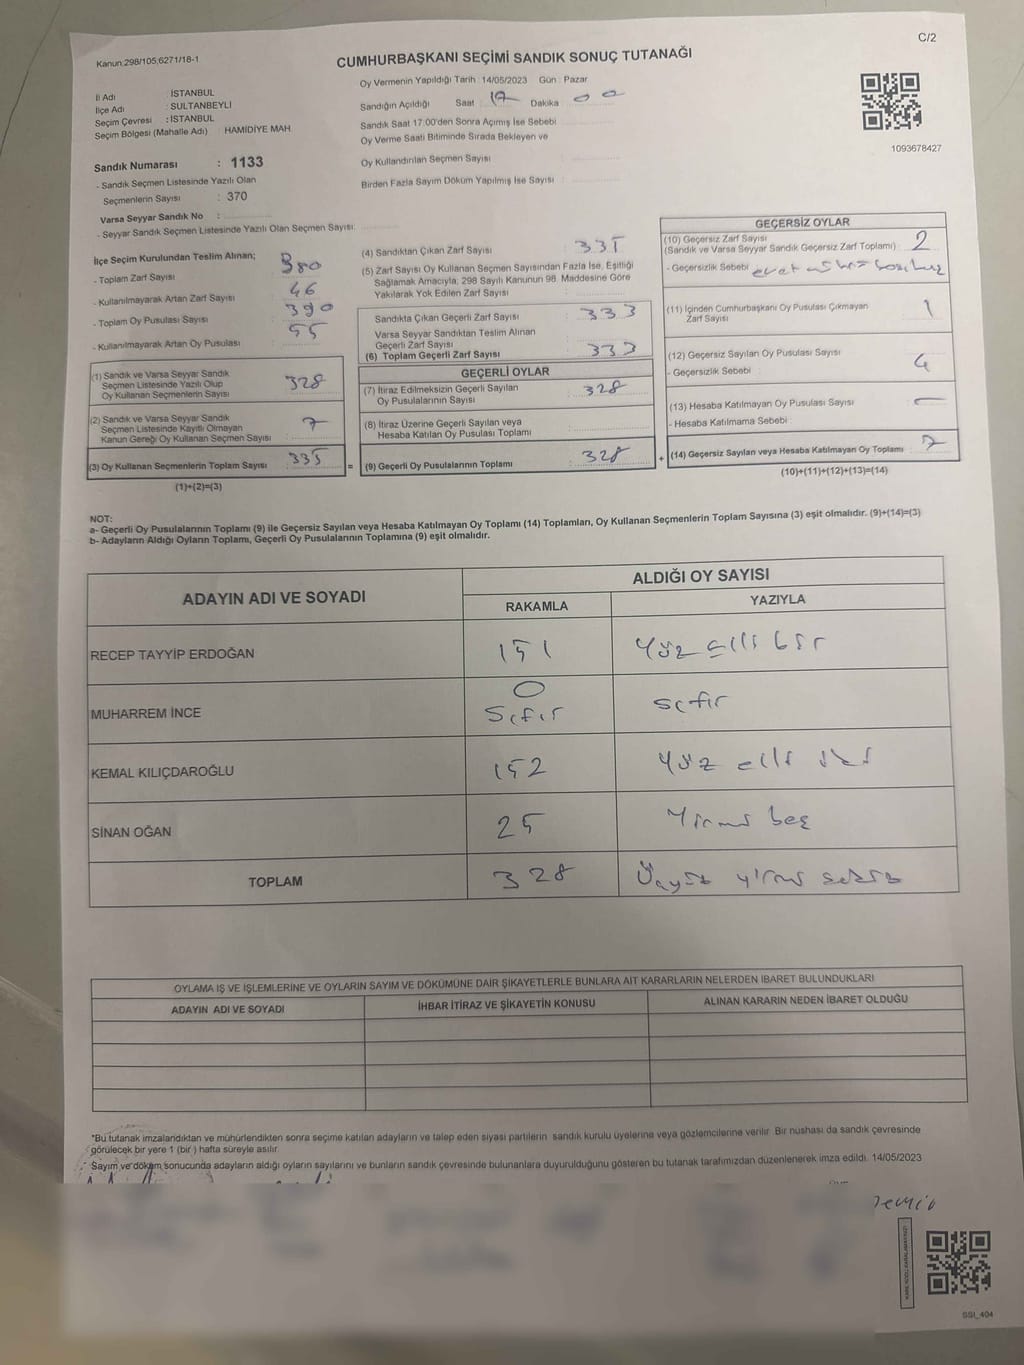 C/2
Kanun:298/105,6271/18-1
CUMHURBAŞKANI SEÇİMİ SANDIK SONUÇ TUTANAĞI
İl Adı : İSTANBUL
İlçe Adı : SULTANBEYLİ
Seçim Çevresi : İSTANBUL
Seçim Bölgesi (Mahalle Adı) : HAMİDİYE MAH.
Sandık Numarası : 1133
- Sandık Seçmen Listesinde Yazılı Olan
Seçmenlerin Sayısı : 370
Varsa Seyyar Sandık No :
- Seyyar Sandık Seçmen Listesinde Yazılı Olan Seçmen Sayısı:
Oy Vermenin Yapıldığı Tarih : 14/05/2023 Gün : Pazar
Sandığın Açıldığı Saat 17 Dakika 00
Sandık Saat 17:00'den Sonra Açımış İse Sebebi
Oy Verme Saati Bitiminde Sırada Bekleyen ve
Oy Kullandırılan Seçmen Sayısı :
Birden Fazla Sayım Döküm Yapılmış İse Sayısı :
1093678427
İlçe Seçim Kurulundan Teslim Alınan;
- Toplam Zarf Sayısı : 380
- Kullanılmayarak Artan Zarf Sayısı : 46
- Toplam Oy Pusulası Sayısı : 390
- Kullanılmayarak Artan Oy Pusulası : 55
(1) Sandık ve Varsa Seyyar Sandık
Seçmen Listesinde Yazılı Olup
Oy Kullanan Seçmenlerin Sayısı : 328
(2) Sandık ve Varsa Seyyar Sandık
Seçmen Listesinde Kayıtlı Olmayan
Kanun Gereği Oy Kullanan Seçmen Sayısı : 7
(3) Oy Kullanan Seçmenlerin Toplam Sayısı : 335
(1)+(2)=(3)
(4) Sandıktan Çıkan Zarf Sayısı : 335
(5) Zarf Sayısı Oy Kullanan Seçmen Sayısından Fazla İse, Eşitliği
Sağlamak Amacıyla; 298 Sayılı Kanunun 98. Maddesine Göre
Yakılarak Yok Edilen Zarf Sayısı :
Sandıkta Çıkan Geçerli Zarf Sayısı : 333
Varsa Seyyar Sandıktan Teslim Alınan
Geçerli Zarf Sayısı
(6) Toplam Geçerli Zarf Sayısı : 333
GEÇERLİ OYLAR
(7) İtiraz Edilmeksizin Geçerli Sayılan
Oy Pusulalarının Sayısı : 328
(8) İtiraz Üzerine Geçerli Sayılan veya
Hesaba Katılan Oy Pusulası Toplamı
= (9) Geçerli Oy Pusulalarının Toplamı : 328
GEÇERSİZ OYLAR
(10) Geçersiz Zarf Sayısı
(Sandık ve Varsa Seyyar Sandık Geçersiz Zarf Toplamı) 2
- Geçersizlik Sebebi
(11) İçinden Cumhurbaşkanı Oy Pusulası Çıkmayan
Zarf Sayısı 1
(12) Geçersiz Sayılan Oy Pusulası Sayısı 4
- Geçersizlik Sebebi :
(13) Hesaba Katılmayan Oy Pusulası Sayısı : -
- Hesaba Katılmama Sebebi :
+ (14) Geçersiz Sayılan veya Hesaba Katılmayan Oy Toplamı : 7
(10)+(11)+(12)+(13)=(14)
NOT:
a- Geçerli Oy Pusulalarının Toplamı (9) ile Geçersiz Sayılan veya Hesaba Katılmayan Oy Toplamı (14) Toplamları, Oy Kullanan Seçmenlerin Toplam Sayısına (3) eşit olmalıdır. (9)+(14)=(3)
b- Adayların Aldığı Oyların Toplamı, Geçerli Oy Pusulalarının Toplamına (9) eşit olmalıdır.
ADAYIN ADI VE SOYADI
ALDIĞI OY SAYISI
RAKAMLA YAZIYLA
RECEP TAYYİP ERDOĞAN 151 Yüz elli bir
MUHARREM İNCE 0 Sıfır sıfır
KEMAL KILIÇDAROĞLU 152 Yüz elli iki
SİNAN OĞAN 25 Yirmi beş
TOPLAM 328 Üçyüz yirmi sekiz
OYLAMA İŞ VE İŞLEMLERİNE VE OYLARIN SAYIM VE DÖKÜMÜNE DAİR ŞİKAYETLERLE BUNLARA AİT KARARLARIN NELERDEN İBARET BULUNDUKLARI
ADAYIN ADI VE SOYADI İHBAR İTİRAZ VE ŞİKAYETİN KONUSU ALINAN KARARIN NEDEN İBARET OLDUĞU
*Bu tutanak imzalandıktan ve mühürlendikten sonra seçime katılan adayların ve talep eden siyasi partilerin sandık kurulu üyelerine veya gözlemcilerine verilir. Bir nushası da sandık çevresinde
görülecek bir yere 1 (bir) hafta süreyle asılır.
Sayım ve döküm sonucunda adayların aldığı oyların sayılarını ve bunların sandık çevresinde bulunanlara duyurulduğunu gösteren bu tutanak tarafımızdan düzenlenerek imza edildi. 14/05/2023
SSI_404